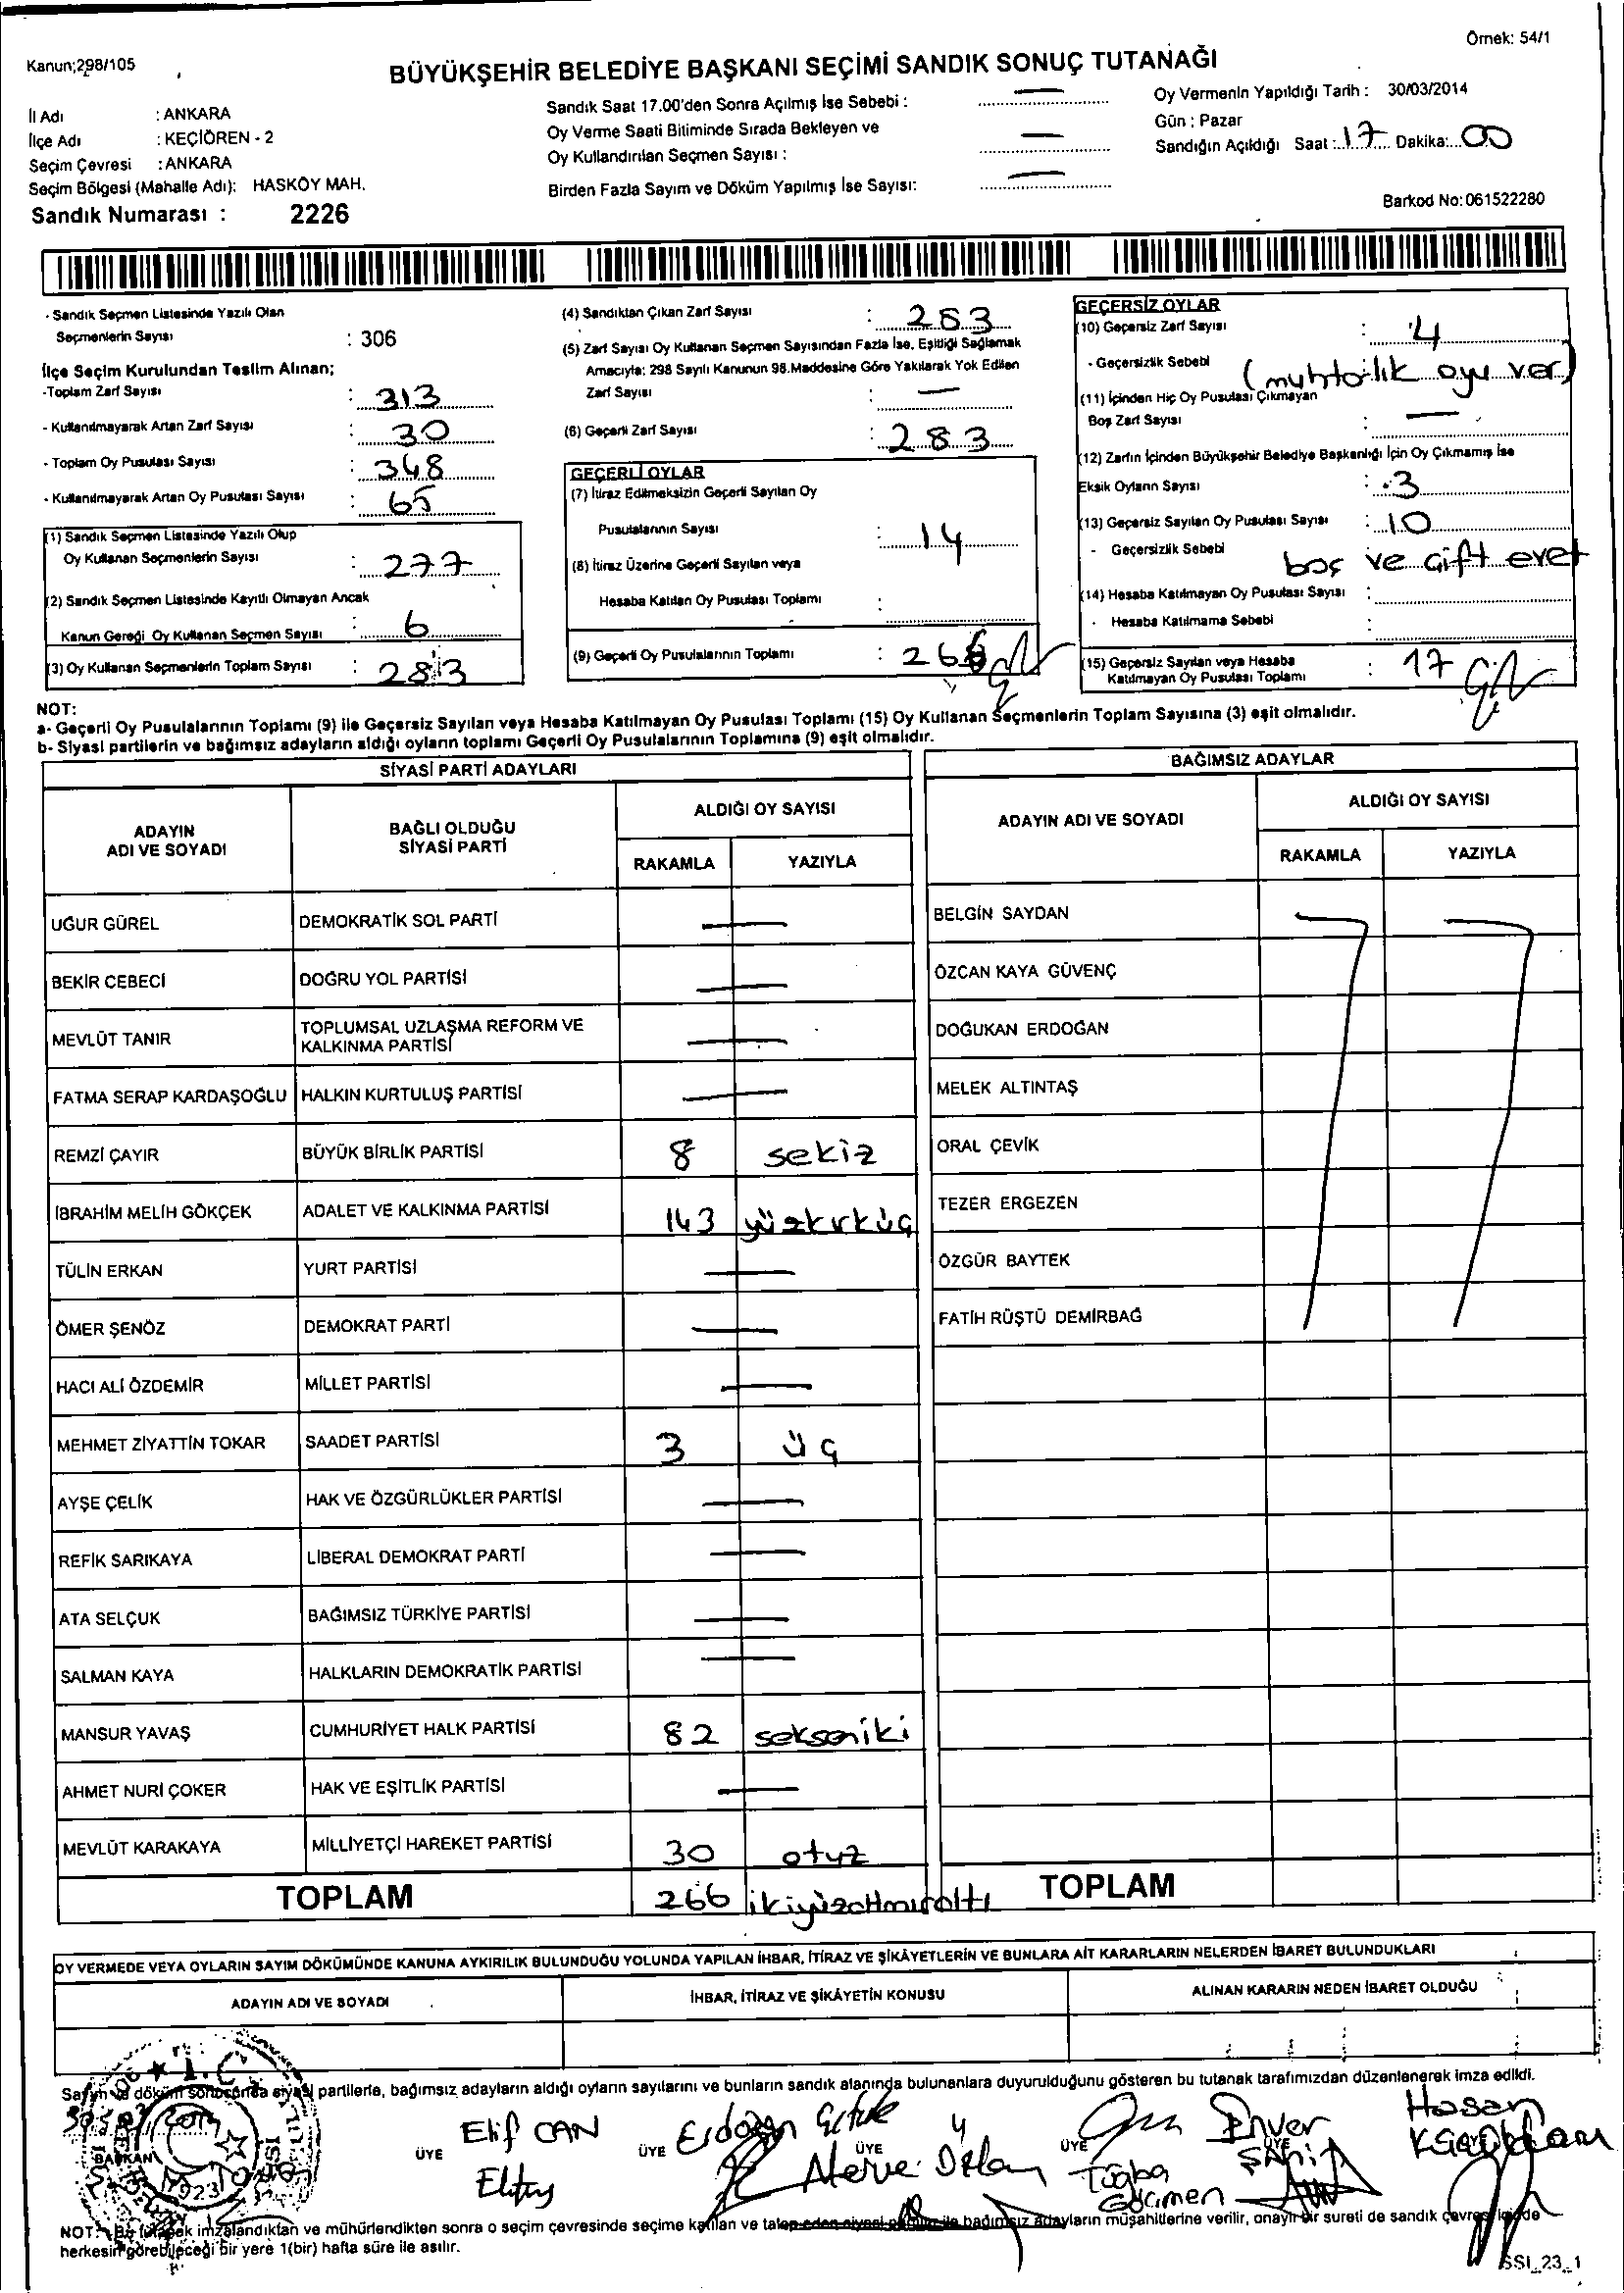 Örnek: 54/1
Kanun;298/105
BÜYÜKŞEHİR BELEDİYE BAŞKANI SEÇİMİ SANDIK SONUÇ TUTANAĞI
İl Adı : ANKARA
İlçe Adı : KEÇİÖREN - 2
Seçim Çevresi : ANKARA
Seçim Bölgesi (Mahalle Adı): HASKÖY MAH.
Sandık Numarası : 2226
Sandık Saat 17.00'den Sonra Açılmış İse Sebebi : —
Oy Verme Saati Bitiminde Sırada Bekleyen ve
Oy Kullandırılan Seçmen Sayısı : —
Birden Fazla Sayım ve Döküm Yapılmış İse Sayısı: —
Oy Vermenin Yapıldığı Tarih : 30/03/2014
Gün : Pazar
Sandığın Açıldığı Saat : 17 Dakika: 00
Barkod No: 061522280
- Sandık Seçmen Listesinde Yazılı Olan
Seçmenlerin Sayısı : 306
İlçe Seçim Kurulundan Teslim Alınan;
-Toplam Zarf Sayısı : 313
- Kullanılmayarak Artan Zarf Sayısı : 30
- Toplam Oy Pusulası Sayısı : 348
- Kullanılmayarak Artan Oy Pusulası Sayısı : 65
(1) Sandık Seçmen Listesinde Yazılı Olup
Oy Kullanan Seçmenlerin Sayısı : 277
(2) Sandık Seçmen Listesinde Kayıtlı Olmayan Ancak
Kanun Gereği Oy Kullanan Seçmen Sayısı : 6
(3) Oy Kullanan Seçmenlerin Toplam Sayısı : 283
(4) Sandıktan Çıkan Zarf Sayısı : 283
(5) Zarf Sayısı Oy Kullanan Seçmen Sayısından Fazla İse, Eşitliği Sağlamak
Amacıyla: 298 Sayılı Kanunun 98.Maddesine Göre Yakılarak Yok Edilen
Zarf Sayısı : —
(6) Geçerli Zarf Sayısı : 283
GEÇERLİ OYLAR
(7) İtiraz Edilmeksizin Geçerli Sayılan Oy
Pusulalarının Sayısı : 14
(8) İtiraz Üzerine Geçerli Sayılan veya
Hesaba Katılan Oy Pusulası Toplamı :
(9) Geçerli Oy Pusulalarının Toplamı : 266
GEÇERSİZ OYLAR
(10) Geçersiz Zarf Sayısı : 4
- Geçersizlik Sebebi (muhtarlık oyu var)
(11) İçinden Hiç Oy Pusulası Çıkmayan
Boş Zarf Sayısı : —
(12) Zarfın İçinden Büyükşehir Belediye Başkanlığı İçin Oy Çıkmamış İse
Eksik Oyların Sayısı : 3
(13) Geçersiz Sayılan Oy Pusulası Sayısı : 10
- Geçersizlik Sebebi boş ve çift evet
(14) Hesaba Katılmayan Oy Pusulası Sayısı :
- Hesaba Katılmama Sebebi :
(15) Geçersiz Sayılan veya Hesaba
Katılmayan Oy Pusulası Toplamı : 17
NOT:
a- Geçerli Oy Pusulalarının Toplamı (9) ile Geçersiz Sayılan veya Hesaba Katılmayan Oy Pusulası Toplamı (15) Oy Kullanan Seçmenlerin Toplam Sayısına (3) eşit olmalıdır.
b- Siyasi partilerin ve bağımsız adayların aldığı oyların toplamı Geçerli Oy Pusulalarının Toplamına (9) eşit olmalıdır.
SİYASİ PARTİ ADAYLARI
ADAYIN ADI VE SOYADI BAĞLI OLDUĞU SİYASİ PARTİ ALDIĞI OY SAYISI
RAKAMLA YAZIYLA
UĞUR GÜREL DEMOKRATİK SOL PARTİ —
BEKİR CEBECİ DOĞRU YOL PARTİSİ —
MEVLÜT TANIR TOPLUMSAL UZLAŞMA REFORM VE KALKINMA PARTİSİ —
FATMA SERAP KARDAŞOĞLU HALKIN KURTULUŞ PARTİSİ —
REMZİ ÇAYIR BÜYÜK BİRLİK PARTİSİ 8 sekiz
İBRAHİM MELİH GÖKÇEK ADALET VE KALKINMA PARTİSİ 143 yüzkırküç
TÜLİN ERKAN YURT PARTİSİ —
ÖMER ŞENÖZ DEMOKRAT PARTİ —
HACI ALİ ÖZDEMİR MİLLET PARTİSİ —
MEHMET ZİYATTİN TOKAR SAADET PARTİSİ 3 üç
AYŞE ÇELİK HAK VE ÖZGÜRLÜKLER PARTİSİ —
REFİK SARIKAYA LİBERAL DEMOKRAT PARTİ —
ATA SELÇUK BAĞIMSIZ TÜRKİYE PARTİSİ —
SALMAN KAYA HALKLARIN DEMOKRATİK PARTİSİ —
MANSUR YAVAŞ CUMHURİYET HALK PARTİSİ 82 sekseniki
AHMET NURİ ÇOKER HAK VE EŞİTLİK PARTİSİ —
MEVLÜT KARAKAYA MİLLİYETÇİ HAREKET PARTİSİ 30 otuz
TOPLAM 266 ikiyüzatmışaltı
BAĞIMSIZ ADAYLAR
ADAYIN ADI VE SOYADI ALDIĞI OY SAYISI
RAKAMLA YAZIYLA
BELGİN SAYDAN
ÖZCAN KAYA GÜVENÇ
DOĞUKAN ERDOĞAN
MELEK ALTINTAŞ
ORAL ÇEVİK
TEZER ERGEZEN
ÖZGÜR BAYTEK
FATİH RÜŞTÜ DEMİRBAĞ
TOPLAM
OY VERMEDE VEYA OYLARIN SAYIM DÖKÜMÜNDE KANUNA AYKIRILIK BULUNDUĞU YOLUNDA YAPILAN İHBAR, İTİRAZ VE ŞİKÂYETLERİN VE BUNLARA AİT KARARLARIN NELERDEN İBARET BULUNDUKLARI
ADAYIN ADI VE SOYADI İHBAR, İTİRAZ VE ŞİKÂYETİN KONUSU ALINAN KARARIN NEDEN İBARET OLDUĞU
Sayım ve döküm sonucunda siyasi partilerle, bağımsız adayların aldığı oyların sayılarını ve bunların sandık alanında bulunanlara duyurulduğunu gösteren bu tutanak tarafımızdan düzenlenerek imza edildi.
BAŞKAN
ÜYE Elif CAN
ÜYE Erdoğan
ÜYE Merve
ÜYE Tuğba Göçmen
ÜYE Enver Şahin
Hasan
NOT: Bu tutanak imzalandıktan ve mühürlendikten sonra o seçim çevresinde seçime katılan ve talep eden siyasi partiler ile bağımsız adayların müşahitlerine verilir, onaylı bir sureti de sandık çevresinde
herkesin görebileceği bir yere 1(bir) hafta süre ile asılır.
SSI_23_1